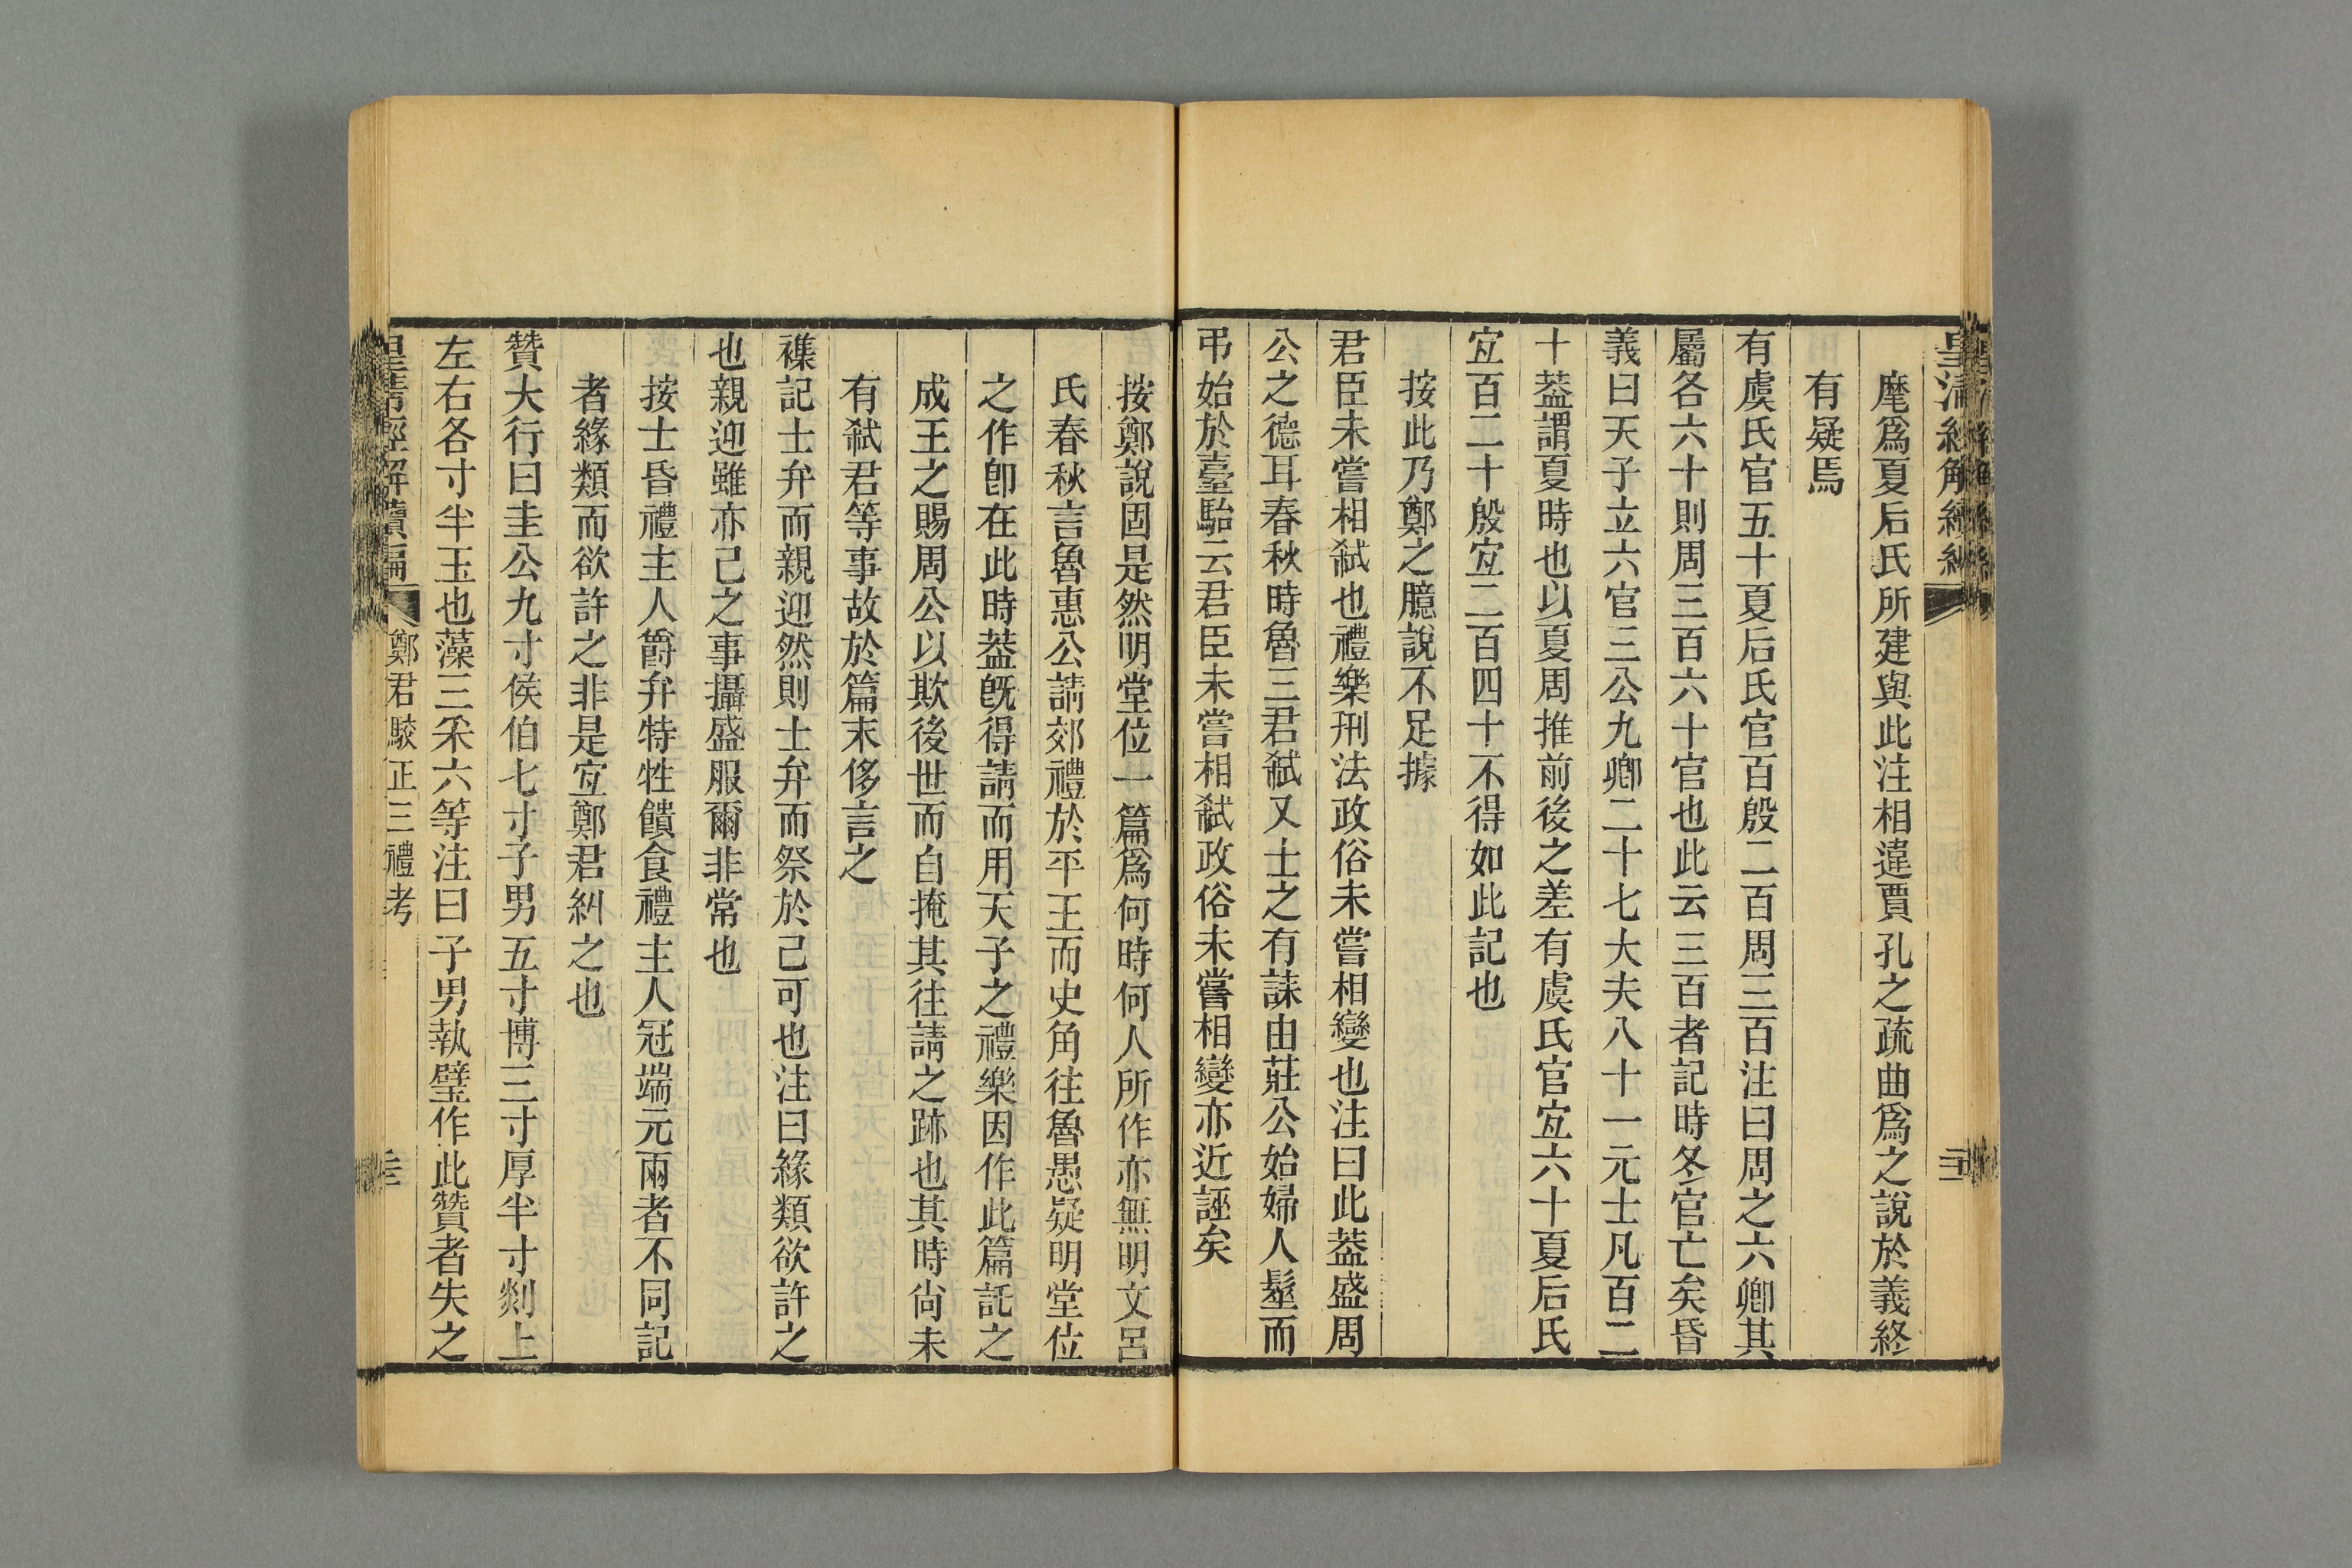 麾爲夏后氏所建與此注相違賈孔之疏曲爲之說於義終
有疑焉
有虞氏官五十夏后氏官百殷二百周三百注曰周之六卿其
屬各六十則周三百六十官也此云三百者記時冬官亡矣昏
義曰天子立六官三公九卿二十七大夫八十一元士凡百二
十葢謂夏時也以夏周推前後之差有虞氏官宐六十夏后氏
宐百二十殷宐二百四十不得如此記也
按此乃鄭之臆說不足據
君臣未嘗相弑也禮樂刑法政俗未嘗相變也注曰此葢盛周
公之德耳春秋時魯三君弑又士之有誄由莊公始婦人髽而
弔始於臺駘云君臣未嘗相弑政俗未嘗相變亦近誣矣
按鄭說固是然明堂位一篇爲何時何人所作亦無明文呂
氏春秋言魯惠公請郊禮於平王而史角往魯愚疑明堂位
之作卽在此時葢旣得請而用天子之禮樂因作此篇託之
成王之賜周公以欺後世而自掩其往請之跡也其時尙未
有弑君等事故於篇末侈言之
襍記士弁而親迎然則士弁而祭於己可也注曰緣類欲許之
也親迎雖亦己之事攝盛服爾非常也
按士昏禮主人爵弁特牲饋食禮主人冠端元兩者不同記
者緣類而欲許之非是宐鄭君糾之也
贊大行曰圭公九寸侯伯七寸子男五寸博三寸厚半寸剡上
左右各寸半玉也藻三采六等注曰子男執璧作此贊者失之
皇清經解續編 鄭君駁正三禮考